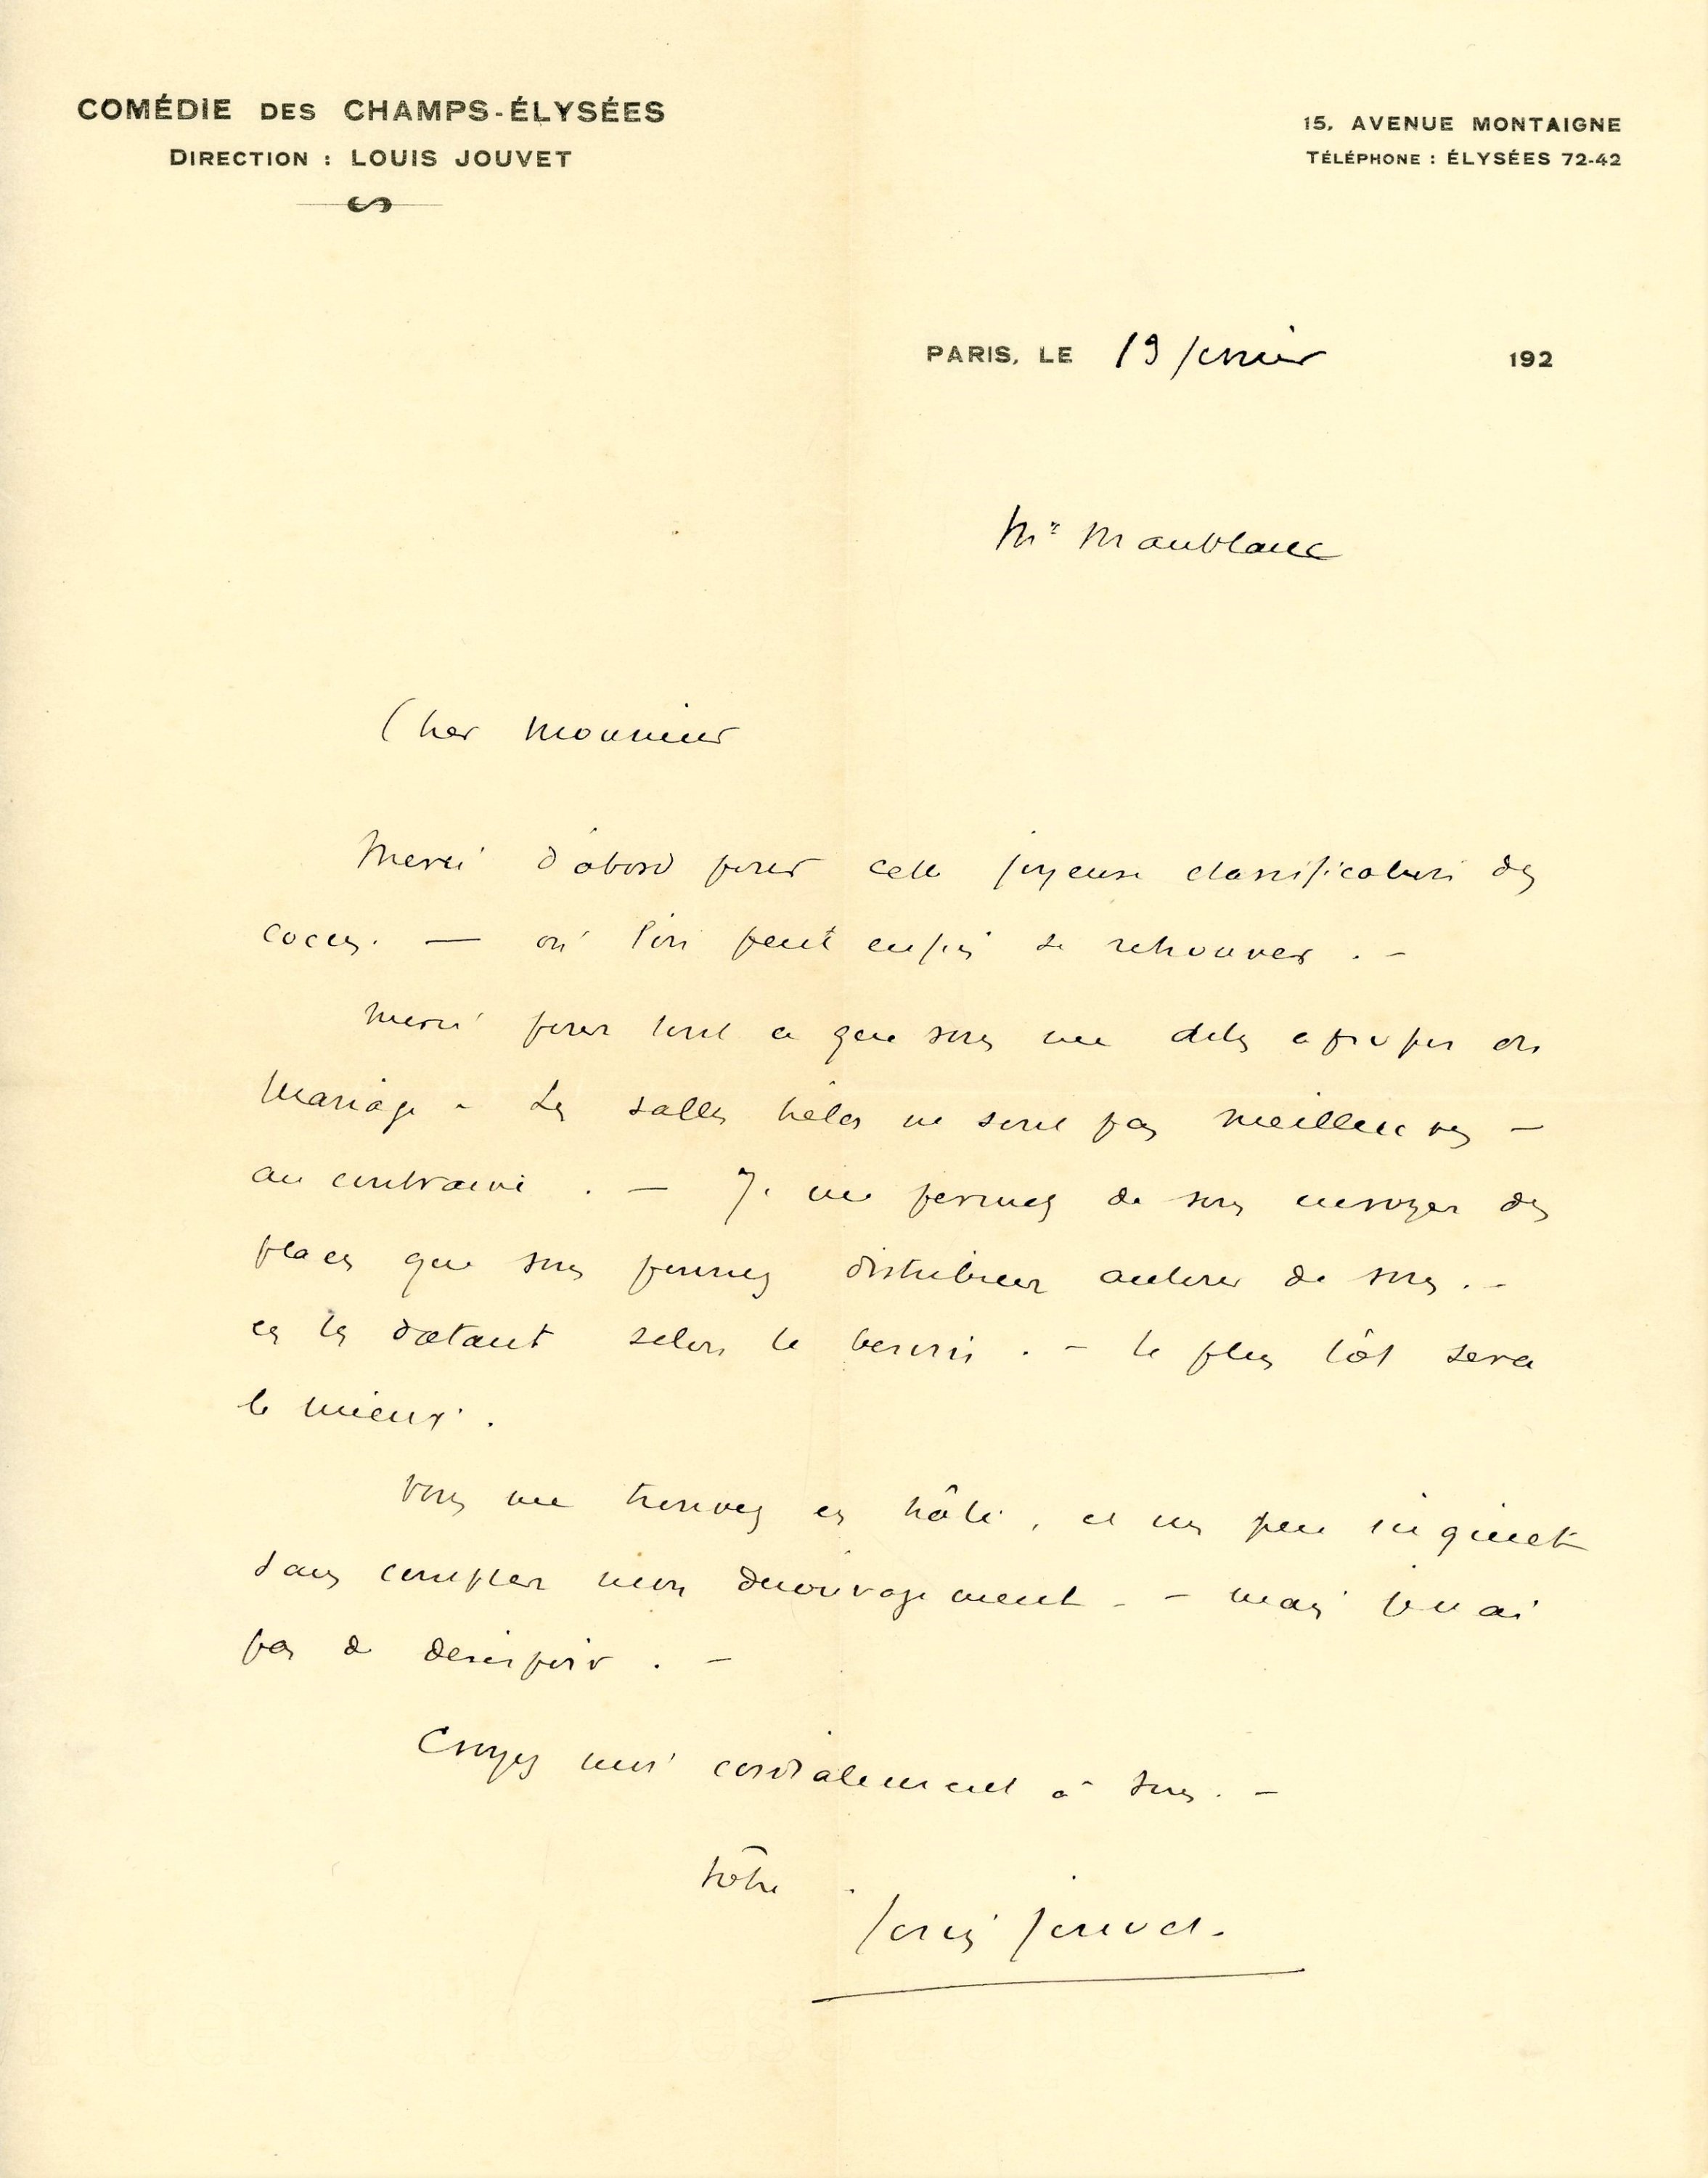 COMÉDIE DES CHAMPS-ÉLYSÉES
DIRECTION : LOUIS JOUVET
15, AVENUE MONTAIGNE
TÉLÉPHONE : ÉLYSÉES 72-42
PARIS, LE 19 février 192
Mr Maublanc
Cher Monsieur
Merci d'abord pour cette joyeuse classification des
cocus. — où l'on peut enfin se retrouver. -
Merci pour tout ce que vous me dites a propos du
Mariage - Les salles hélas ne sont pas meilleures -
au contraire. — Je me permets de vous envoyer des
places que vous pourrez distribuer autour de vous. -
en les datant selon le besoin. - le plus tôt sera
le mieux.
Vous me trouvez en hâte, et un peu inquiet
sans compter mon découragement - - mais je n'ai
pas de désespoir. -
Croyez moi cordialement à vous. -
Vôtre
Louis Jouvet.